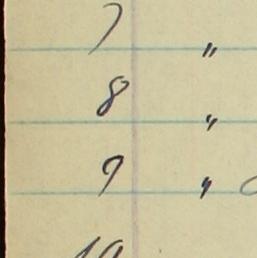 7 "
8 "
9 "
10